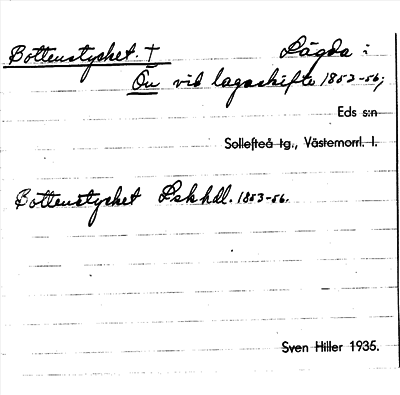 Bottenstycket. † Lägda:
Ön vid lagaskifte 1853-56;
Eds s:n
Sollefteå tg., Västernorrl. l.
Bottenstycket Lskhdl. 1853-56.
Sven Hiller 1935.